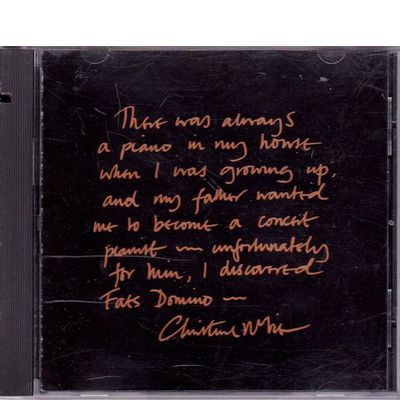 There was always
a piano in my house
when I was growing up,
and my father wanted
me to become a concert
pianist — unfortunately
for him, I discovered
Fats Domino —
Christine